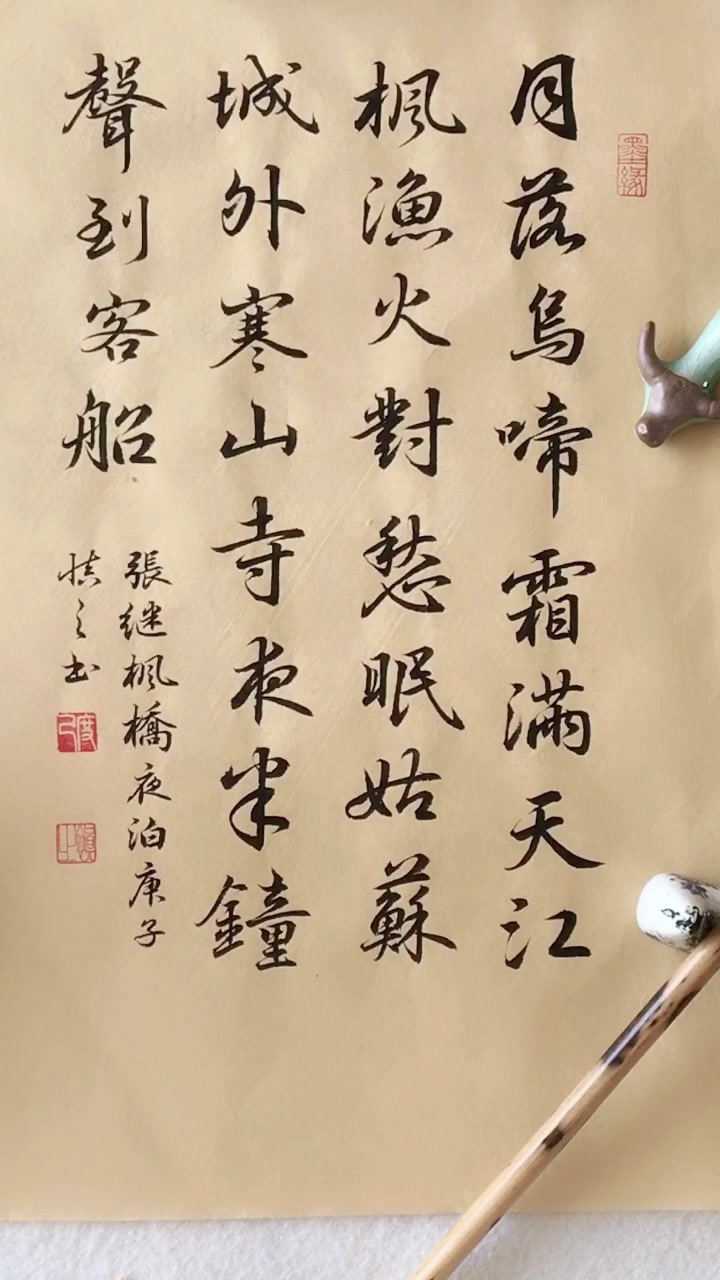 月落烏啼霜滿天江
楓漁火對愁眠姑蘇
城外寒山寺夜半鐘
聲到客船
張继楓橋夜泊庚子
慎之书
墨缘